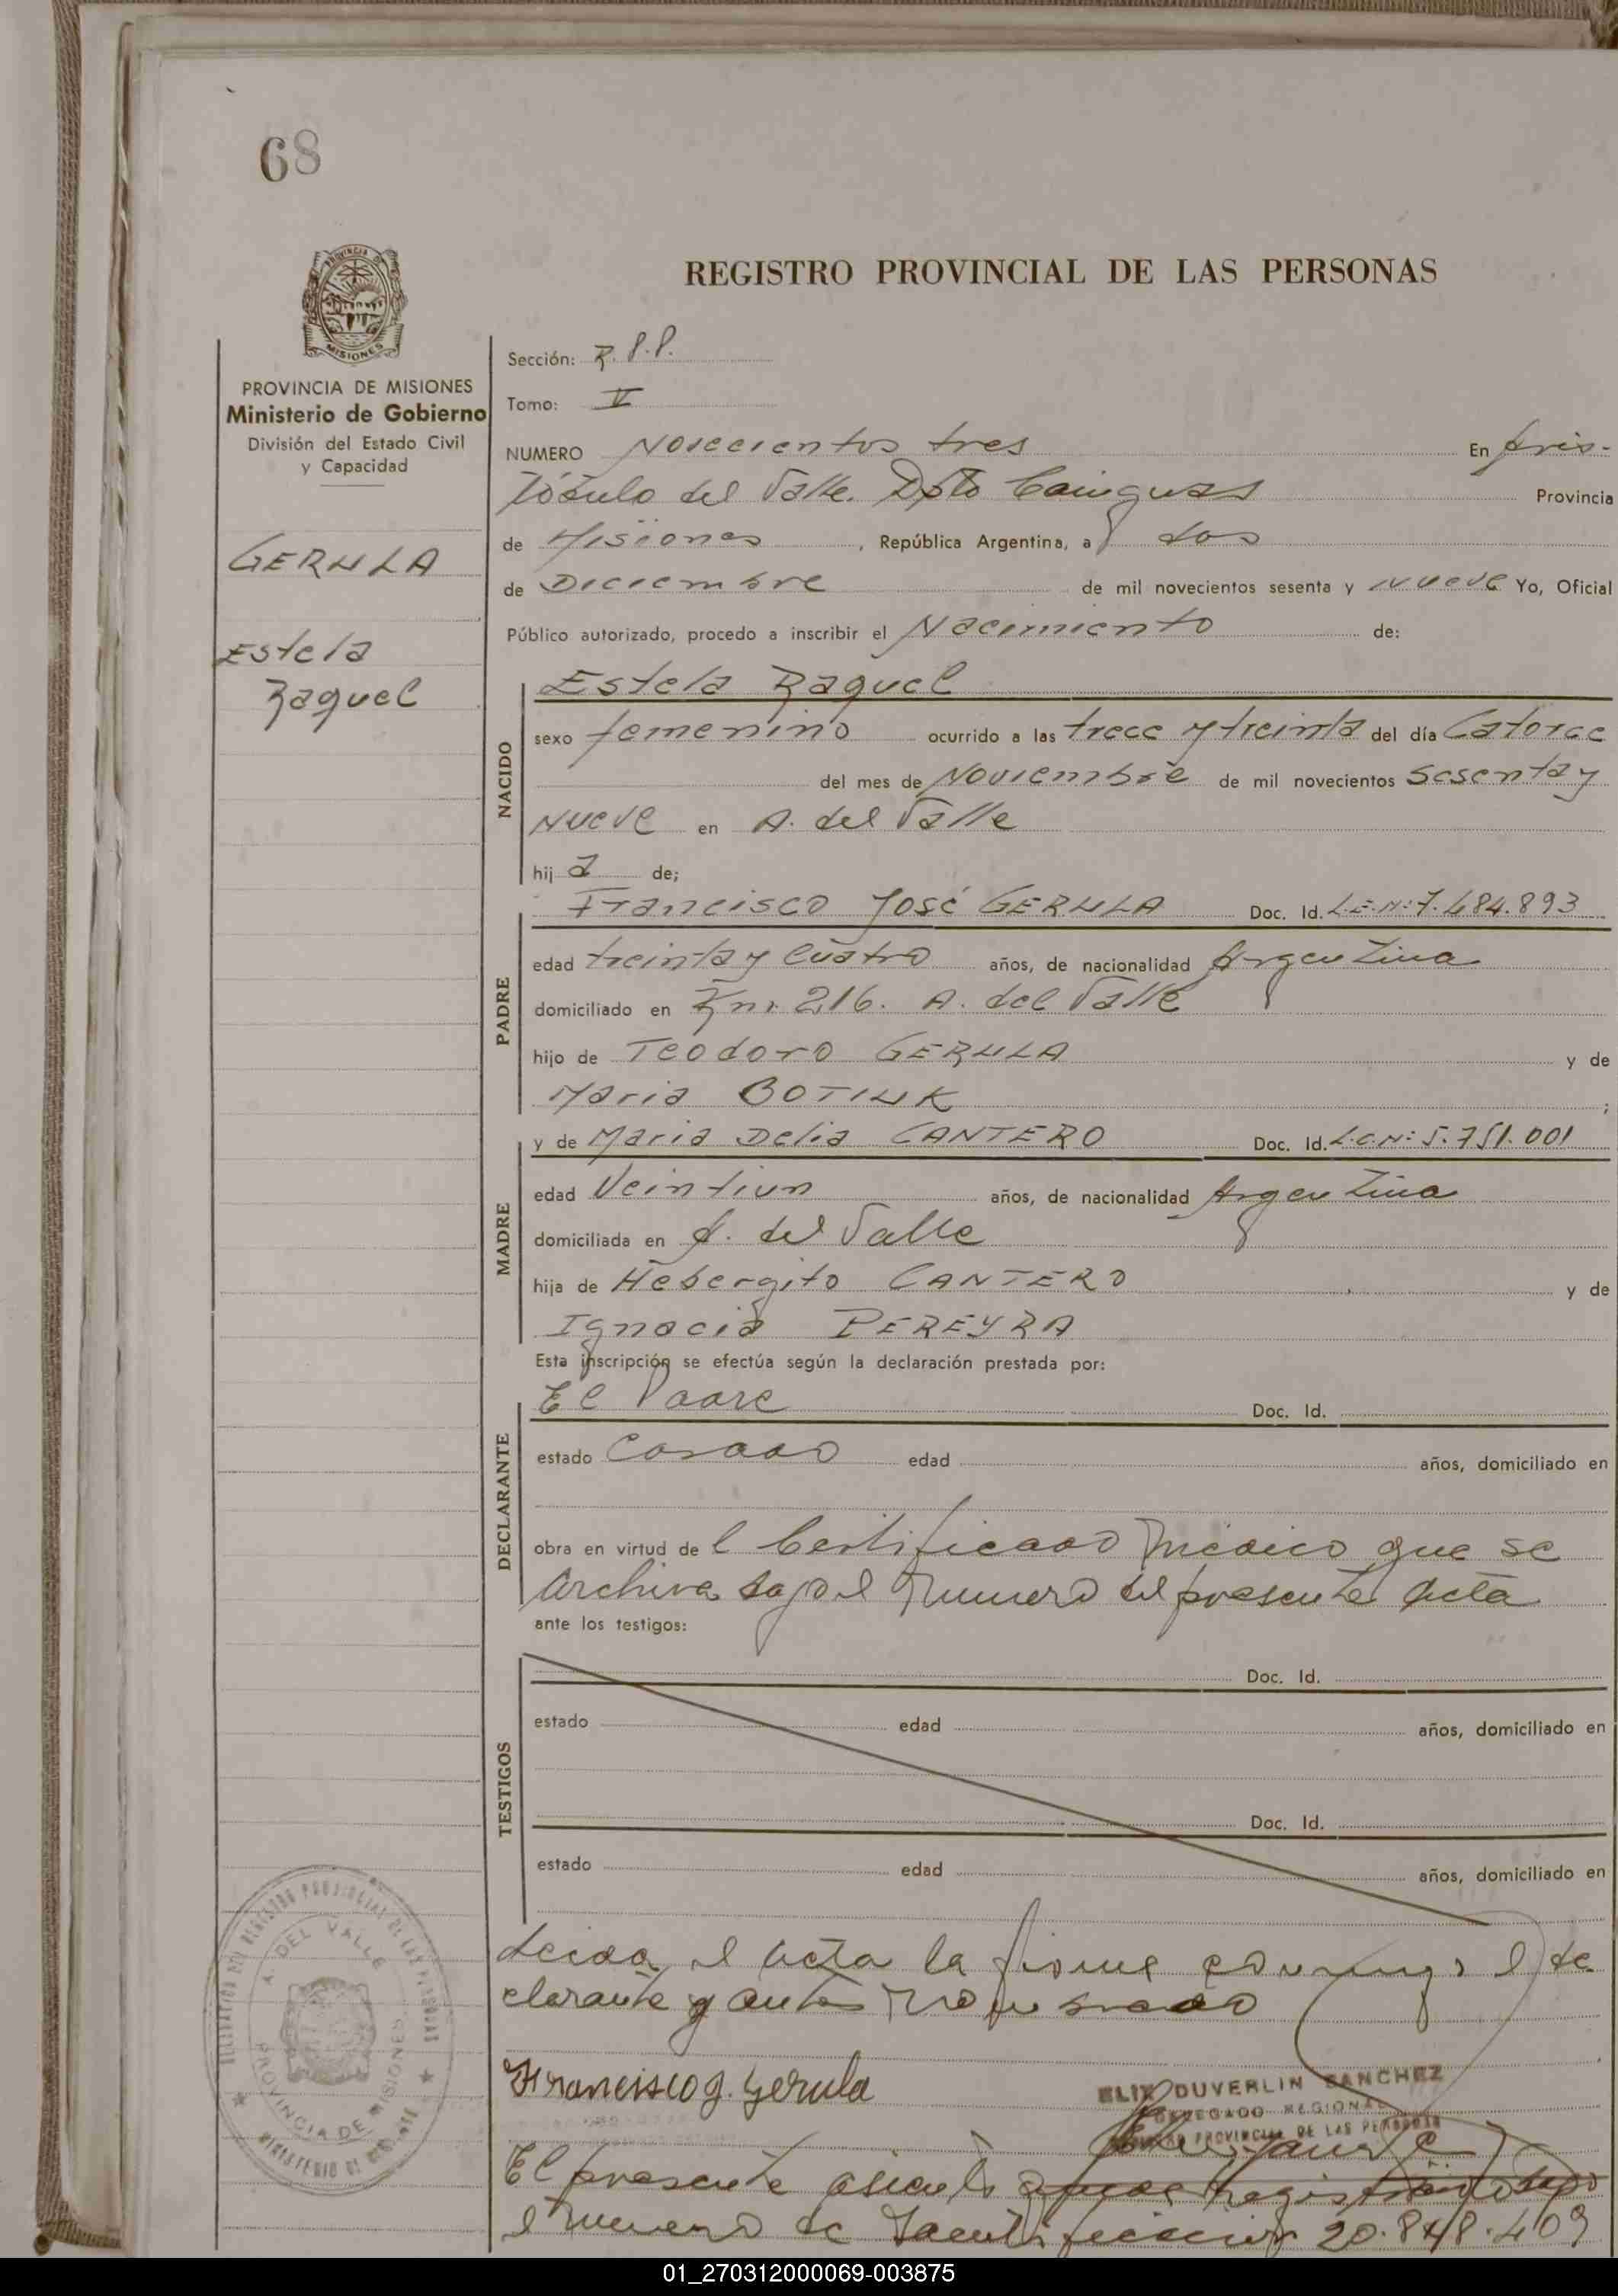 68
REGISTRO PROVINCIAL DE LAS PERSONAS
MISIONES
PROVINCIA DE MISIONES
Ministerio de Gobierno
División del Estado Civil
y Capacidad
GERULA
Estela
Raquel
Sección: R.P.P.
Tomo: V
NUMERO Novecientos tres En Aris-
tóbulo del Valle. Dpto Cainguas Provincia
de Misiones, República Argentina, a dos
de Diciembre de mil novecientos sesenta y nueve Yo, Oficial
Público autorizado, procedo a inscribir el Nacimiento de:
NACIDO
Estela Raquel
sexo femenino ocurrido a las trece y treinta del día Catorce
del mes de Noviembre de mil novecientos sesenta y
nueve en A. del Valle
hija de;
PADRE
Francisco José GERULA Doc. Id. L.E.Nº: 7.484.893
edad treinta y cuatro años, de nacionalidad Argentina
domiciliado en Km. 216. A. del Valle
hijo de Teodoro GERULA y de
Maria BOTIUK ;
MADRE
y de Maria Delia CANTERO Doc. Id. L.C.Nº: 5.751.001
edad Veintiun años, de nacionalidad Argentina
domiciliada en A. del Valle
hija de Hebergito CANTERO y de
Ignacia PEREYRA
Esta inscripción se efectúa según la declaración prestada por:
DECLARANTE
El Padre Doc. Id.
estado Casado edad años, domiciliado en
obra en virtud del Certificado Médico que se
archiva bajo el Numero del presente acta
ante los testigos:
TESTIGOS
Doc. Id.
estado edad años, domiciliado en
Doc. Id.
estado edad años, domiciliado en
Leida el acta la firma conmigo el de
clarante y antes
Francisco J. Gerula
DUVERLIN SANCHEZ
DELEGADO REGIONAL
PROVINCIAL DE LAS PERSONAS
A. DEL VALLE
PROVINCIA DE MISIONES
MINISTERIO DE GOBIERNO
El presente asiento queda registrado bajo
el Numero de Identificacion 20.848.409
01_270312000069-003875